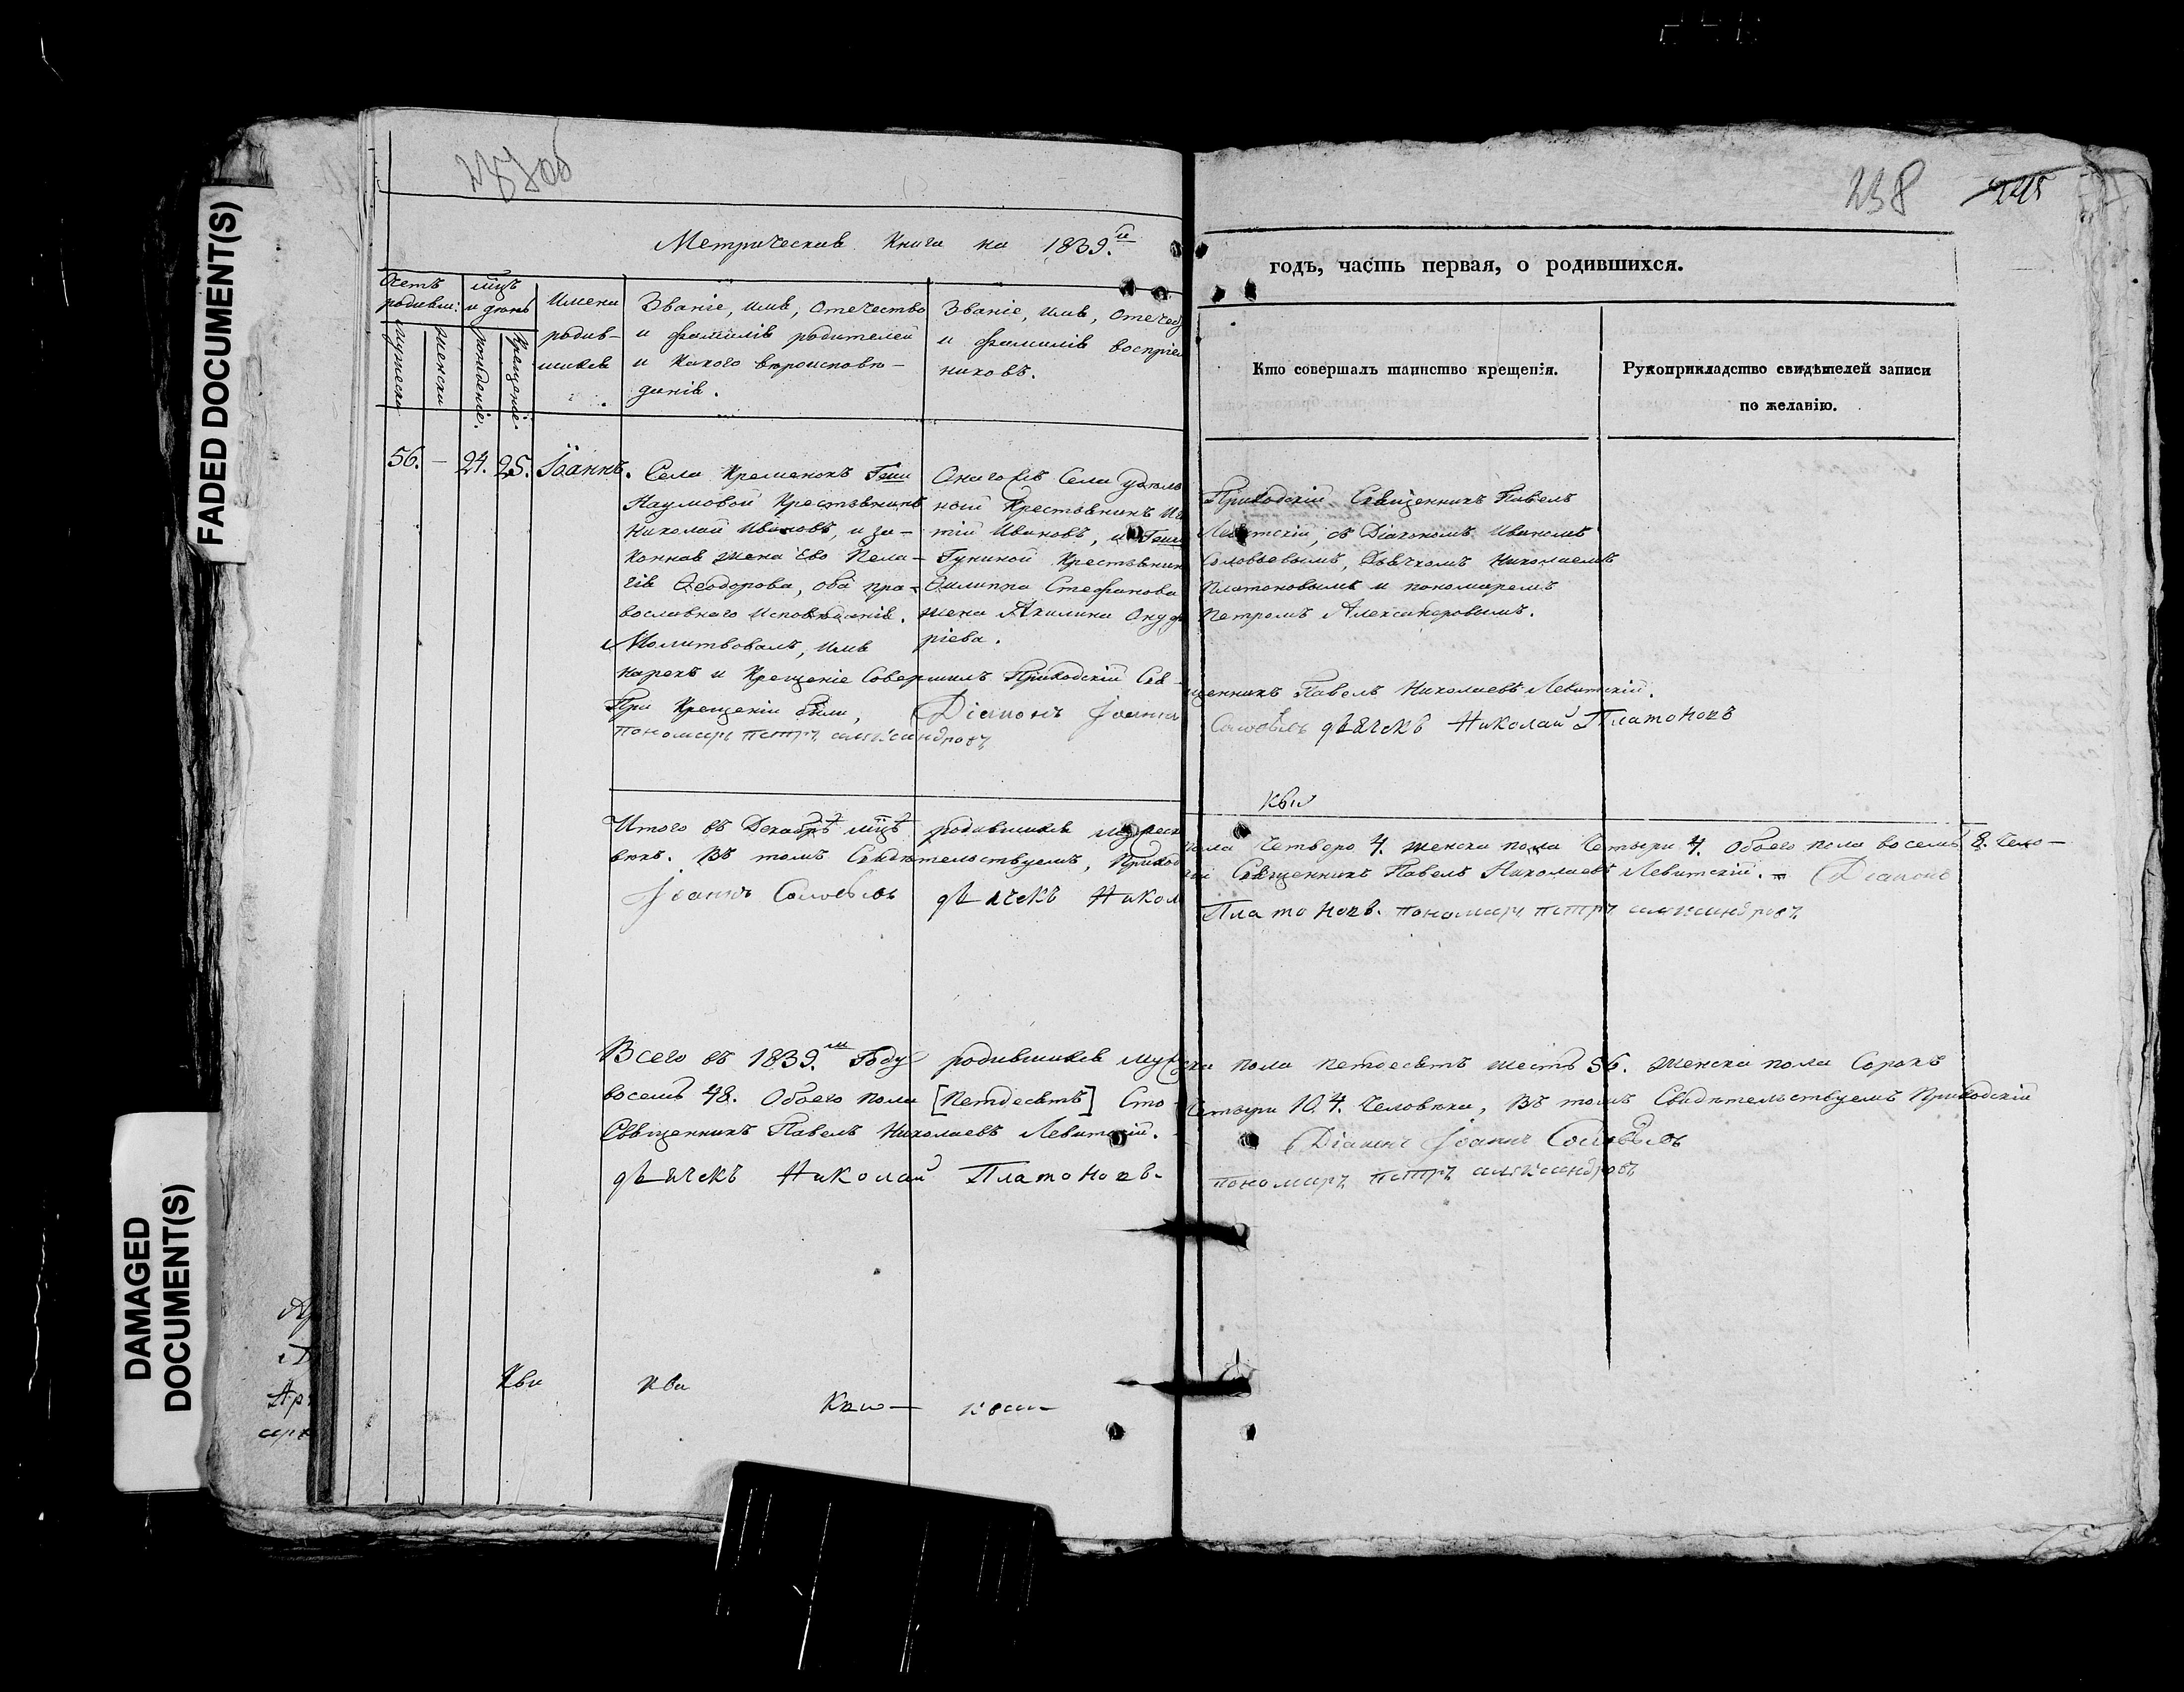 FADED DOCUMENT(S)
DAMAGED
DOCUMENT(S)
238
245
Метрическая Книга на 1839.й
годъ, часть первая, о родившихся.
Счетъ родивш:
мужеска
женска
мцъ и день
рожденіе.
Крещеніе.
Имена
родив-
шихся
Званіе, имя, Отечество
и фамилія родителей
и какого вѣроисповѣ-
данія.
Званіе, имя, Отечес
и фамилія воспріем
никовъ.
Кто совершалъ таинство крещенія.
Рукоприкладство свидѣтелей записи
по желанію.
56. – 24. 25. Іоаннъ.
Села Кременокъ
Наумовой Крестьянинъ
Николай Ивановъ, и за-
конная жена Ево Пела-
гія Ѳеодорова, оба пра-
вославнаго исповѣданія.
Онаго жъ Села удѣль
ной Крестьянинъ
тій Ивановъ, и
Гуниной Крестьянин
Филиппа Стефанова
жена Акилина Онуф
ріева.
Приходскій Священникъ Павелъ
Левитскій, съ Діакономъ Иваномъ
Соловьевымъ, Дьячкомъ Николаемъ
Платоновымъ и пономаремъ
Петромъ Александровымъ.
Молитвовалъ, имя
нарекъ и Крещеніе Совершилъ Приходскій Свя-щенникъ Павелъ Николаевъ Левитскій.
При Крещеніи были, Діаконъ Іоаннъ Соловьевъ дьячекъ Николай Платоновъ
пономарь петръ александровъ
Итого въ Декабрѣ мцѣ родившихся мужеск пола Четверо 4. женска пола Четыри 4. Обоего пола восемь 8. Чело-
вѣкъ. Въ томъ Свидѣтельствуемъ, Приход Священникъ Павелъ Николаевъ Левитскій. – Діаконъ
Іоаннъ Соловьевъ дьячекъ Никол Платоновъ. пономарь петръ александровъ
Всего въ 1839.м Году родившихся мужеска пола петдесятъ шесть 56. женска пола Сорокъ
восемь 48. Обоего пола [петдесятъ] Сто четыри 10.4. Человѣка, Въ томъ Свидѣтельствуемъ Приходскій
Священникъ Павелъ Николаевъ Левитскій. – Діаконъ Іоаннъ Соловьевъ
дьячекъ Николай Платоновъ. пономарь петръ александровъ